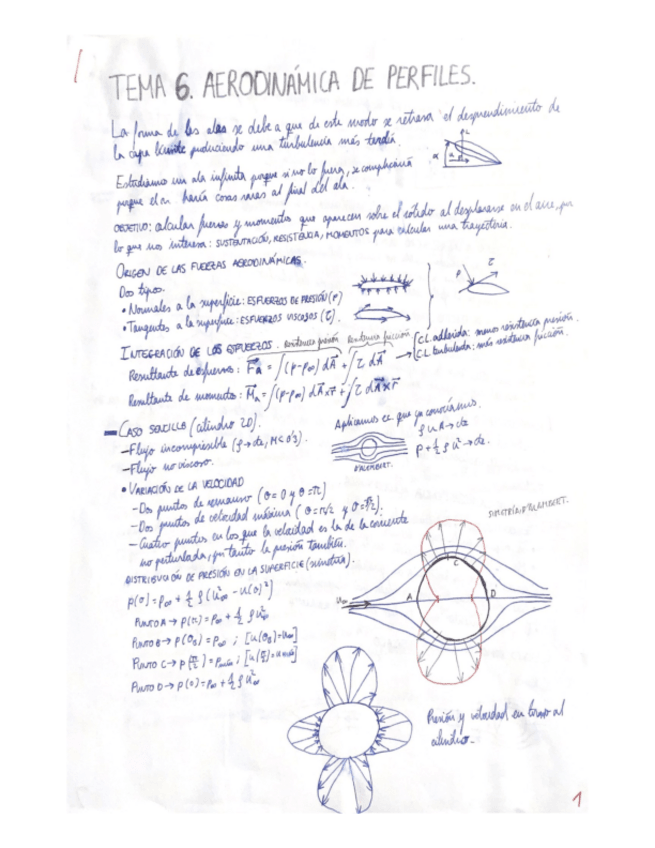 1
TEMA 6. AERODINÁMICA DE PERFILES.
La forma de las alas se debe a que de este modo se retrasa el desprendimiento de
la capa límite produciendo una turbulencia más tardía.
Estudiamos un ala infinita porque si no lo fuera, se complicaría
porque el air haría cosas raras al final del ala.
OBJETIVO: calcular fuerzas y momentos que aparecen sobre el sólido al desplazarse en el aire, por
lo que nos interesa: SUSTENTACIÓN, RESISTENCIA, MOMENTOS para calcular una trayectoria.
ORIGEN DE LAS FUERZAS AERODINÁMICAS.
Dos tipos.
• Normales a la superficie: ESFUERZOS DE PRESIÓN (P)
• Tangentes a la superficie: ESFUERZOS VISCOSOS (τ).
P τ
INTEGRACIÓN DE LOS ESFUERZOS. Resistencia presión Resistencia fricción
Resultante de esfuerzo: Fa = ∫(p-p∞) dA + ∫τ dA
→ C.L. adherida: menos resistencia presión.
C.L. turbulenta: más resistencia fricción.
Resultante de momento: Ma = ∫(p-p∞) dA×r + ∫τ dA×r
- CASO SENCILLO (cilindro 2D).
- Flujo incompresible (ρ→cte, M<0'3).
- Flujo no viscoso.
Aplicamos ec. que ya conocíamos.
ρ u A → cte
p + ½ ρ u² → cte.
D'ALEMBERT.
• VARIACIÓN DE LA VELOCIDAD
- Dos puntos de remanso (θ=0 y θ=π)
- Dos puntos de velocidad máxima (θ=π/2 y θ=3π/2).
- Cuatro puntos en los que la velocidad es la de la corriente
no perturbada, por tanto la presión también.
DISTRIBUCIÓN DE PRESIÓN EN LA SUPERFICIE (simétrica).
p(θ) = p∞ + ½ ρ (u²∞ - u(θ)²)
PUNTO A → p(π) = p∞ + ½ ρ u²∞
PUNTO B → p(θB) = p∞ ; [u(θB)=u∞]
PUNTO C → p(π/2) = pmín ; [u(π/2)=umáx]
PUNTO D → p(0) = p∞ + ½ ρ u²∞
U∞ A C D
Presión y velocidad en torno al
cilindro.
1